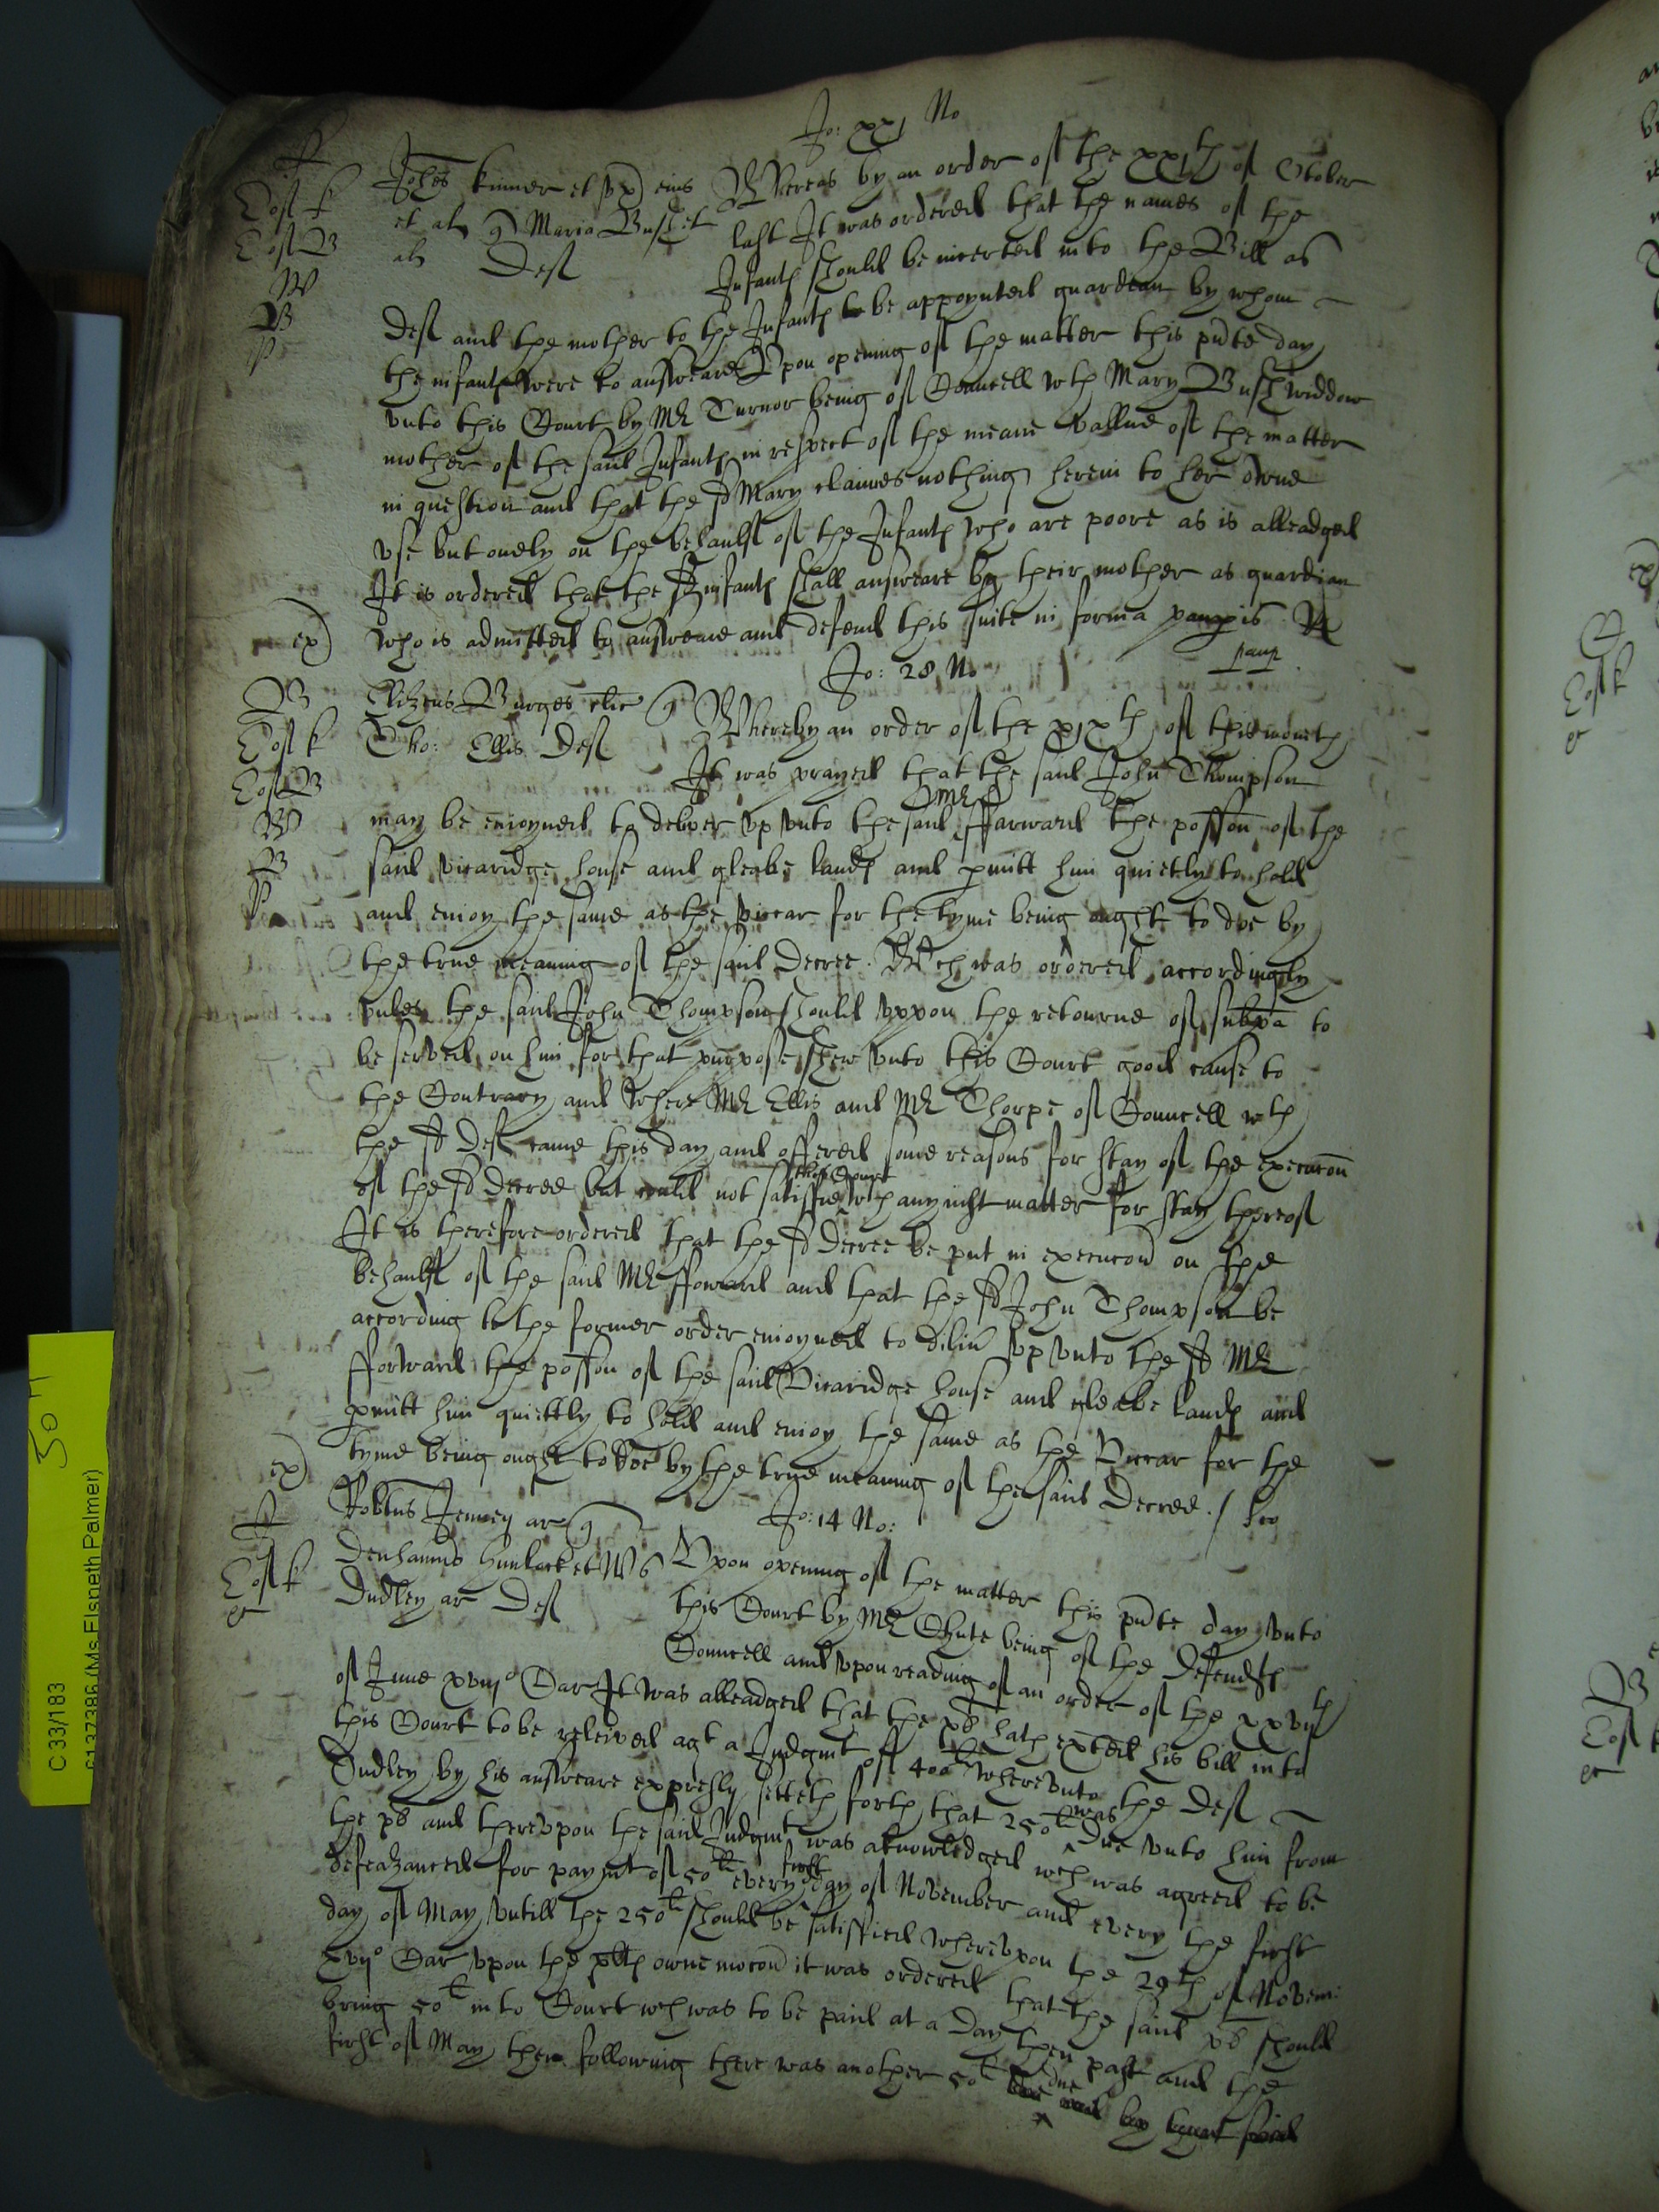 Jo: xxj No
Johes kinner et ux eius Whereas by an order of the xxjth of October
et al q Maria Bush et last It was ordered that the names of the
al Def Infants should be incerted into the Bill as
Def and the mother to the Infants to be appoynted guardean by whom
the infants were to answeare Upon opening of the matter this pnte day
unto this Court by Mr Turnor being of Councell wth Mary Bush widdow
mother of the said Infants in respect of the meane vallue of the matter
in question and that the sd Mary claimes nothing herein to her owne
use but onely on the behaulf of the Infants who are poore as is alleadged
It is ordered that the sd infants shall answeare by their mother as guardian
who is admitted to answeare and defend this suite in forma paupis
paup
Jo: 28 No
Elizeus Burges clic q Whereby an order of the xixth of this moneth
Tho: Ellis Def It was prayed that the said John Thompson
may be enioyned to deliver up unto the said Mr ffarward the possion of the
said vicaridge house and gleabe lands and pmitt him quietly to hold
and enioy the same as the viccar for the tyme being ought to doe by
the true meaning of the said Decree. Wch was ordered accordingly
unles the said John Thompson should uppon the retourne of subpa to
be served on him for that purpose shew unto this Court good cause to
the Contrary and where Mr Ellis and Mr Thorpe of Councell wth
the sd Def came this day and offered some reasons for stay of the execucon
of the sd decree but could not satisfie this Court wth any iust matter for stay thereof
It is therefore ordered that the sd decree be put in execucon on the
behaulf of the said Mr fforward and that the sd John Thompson be
according to the former order enioyned to diliv up unto the sd Mr
fforward the possion of the said Vicaridge house and gleabe lands and
pmitt him quiettly to hold and enioy the same as the Viccar for the
tyme being ought to doe by the true meaning of the said Decree./
Robtus Jenney ar q Jo: 14 No:
Denhamus Hunlock et Upon opening of the matter this pnte day unto
Dudley ar Def this Court by Mr Chute being of the Defendts
Councell and upon reading of an order of the xxvijth
of June xviijo Car It was alleadged that the pl hath exhted his bill into
this Court to be releived agt a Judgmt of 400l whereunto the Def
Dudley by his answeare expresly setteth forth that 250l was due unto him from
the pl and thereupon the said Judgmt was aknowledged wch was agreed to be
defeazanced for paymt of 50l every first day of November and every the first
day of May untill the 250l should be satisfied whereupon the 29th of Novem:
xvijo Car upon the plts owne mocon it was ordered that the said pl should
bring 50l into Court wch was to be paid at a day then past and the
first of May then following there was another 50l due
C 33/183
(Ms Elspeth Palmer)